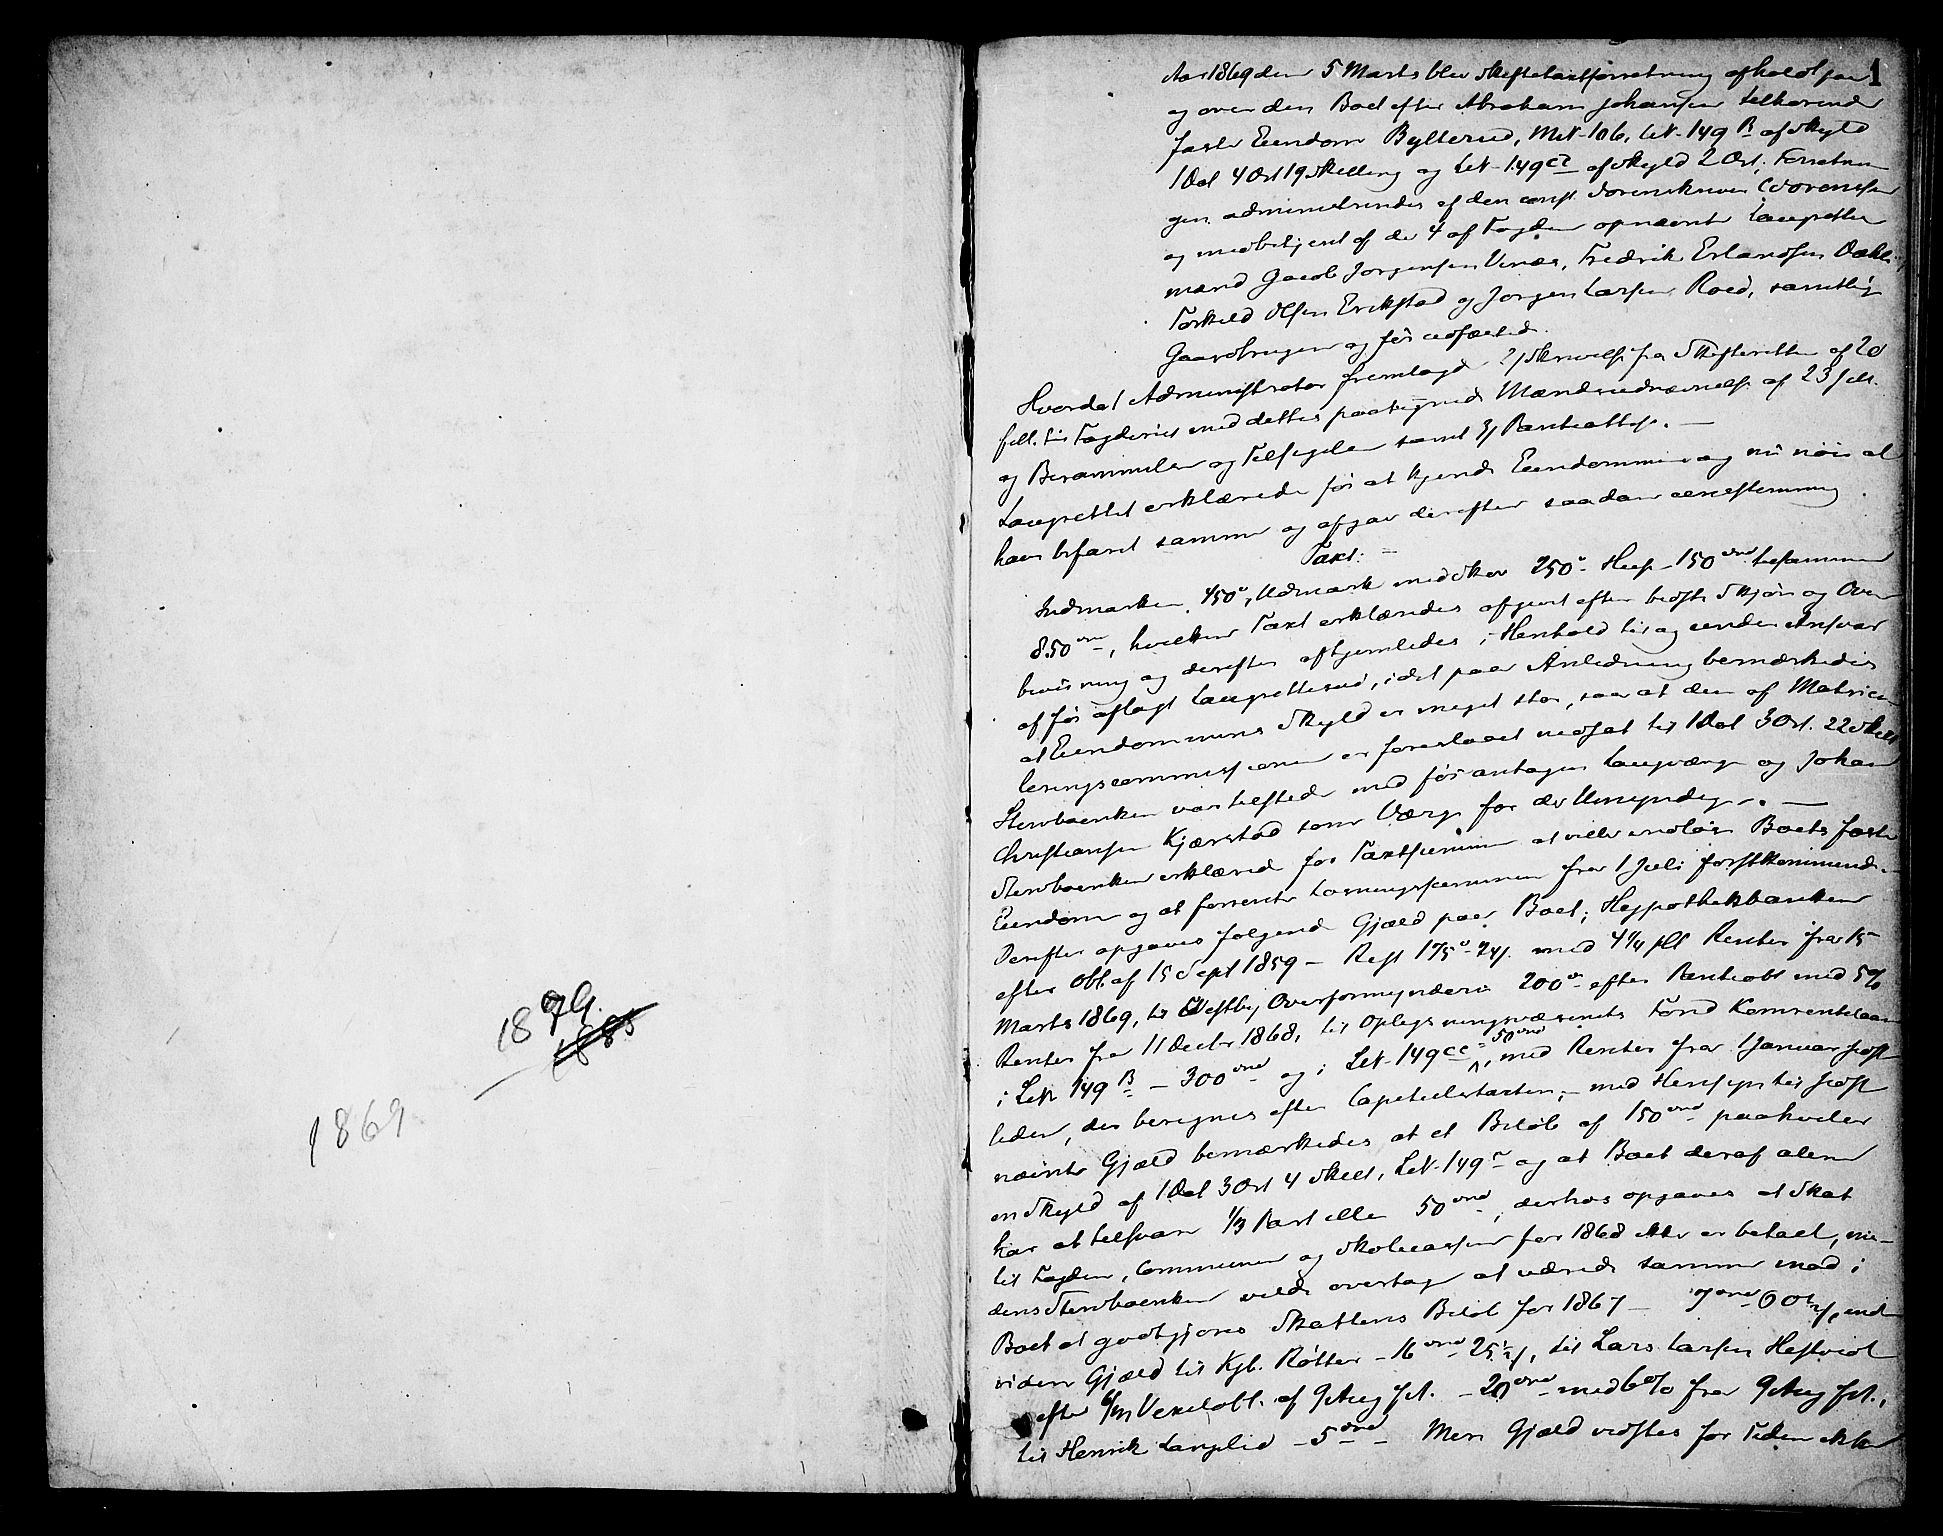 1879.
1885
1869
1
Aar 1869 den 5 Marts blev Skiftetaxtforretning afholdt paa
og over den Boet efter Abraham Johansen tilhørende
faste Eiendom Bylterud, Mat. 106, LN. 149 B af Skyld
1 Dal 4 Ort 19 Skilling og LN. 149 af Skyld 2 Ort. Forretnin
gen administreredes af den const Sorenskriver
og medbetjent af de 4 af Fogden opnævnte Laugrettes
mænd Jacob Jørgensen Vinæs, Fredrik Erlandsen
Torkild Olsen Erikstad og Jørgen Larsen Roed, samtlige
Gaardbrugere og før edfæsted.
Hvorda! Administrator fremlagde Skrivelse fra Skifteretten af 20
febr. til Fogderiet med dettes paategnede Mændsudnævnelse af 23 febr.
og Berammelse og Tilsigelse samt 3 Panteattest. —
Laugrettet erklærede før at kjende Eiendommen og nu nøie at
have befaret samme og afgav derefter saadan eenstemmig
Taxt: —
Indmarken 450, Udmark med Skov 250 Huse 150 tilsammen
850, hvilken Taxt erklæredes afgivet efter bedste Skjøn og Over
beviisning og derefter afhjemledes i Henhold til og under Ansvar
af før aflagt Laugretteseed, idet paa Anledning bemærkedes
at Eiendommens Skyld er meget stor, saa at den af Matricu
leringscommissionen er foreslaaet nedsat til 1 Dal 3 Ort. 22 Skill
Stervboenken var tilstede med før antagen Laugværge og Johan
Christiansen Kjærstad som Værge for de Umyndige. —
Stervboenken erklærede for Taxtsummen at ville indløse Boets faste
Eiendom og at forrente Løsningssummen fra 1 Juli førstkommende.
Derefter opgaves følgende Gjæld paa Boet; Hypothekbanken
efter Obl. af 15 Sept 1859 — Rest 175 med 4 1/4 pCt Renter fra 15
Marts 1869, til Vestby Overformynderi 200 efter Panteobl med 5%
Renter fra 11 Decbr 1868, til Oplysningsvæsenets Fond Kornrentelaan
i LN 149 B — 300 og i LN. 149 50, med Renter fra 1 Januar sidst
leden, der beregnes efter Capitelstaxten; — med Hensyn til sidst
nævnte Gjæld bemærkedes at et Beløb af 150 paahviler
en Skyld af 1 Dal 3 Ort 4 Skill, LN. 149 og at Boet deraf alene
har at tilsvare 1/3 Part eller 50, derhos opgaves at Skat
til Fogden, Commune og Skolecassen for 1868 ikke er betalt, me-
dens Stervboenken vilde overtage at udrede samme mod i
Boet at godtgjøres Skattens Beløb for 1867 — 7 end
viden Gjæld til Kjb. Røtter — 16 25, til Lars Larsen Hestvedt
efter Vexelobl. af 9 Aug f.A. — 20 med 6% fra 9 Aug f.A.,
til Henrik Langlie — 5 — Mere Gjæld vidstes for Tiden ikke